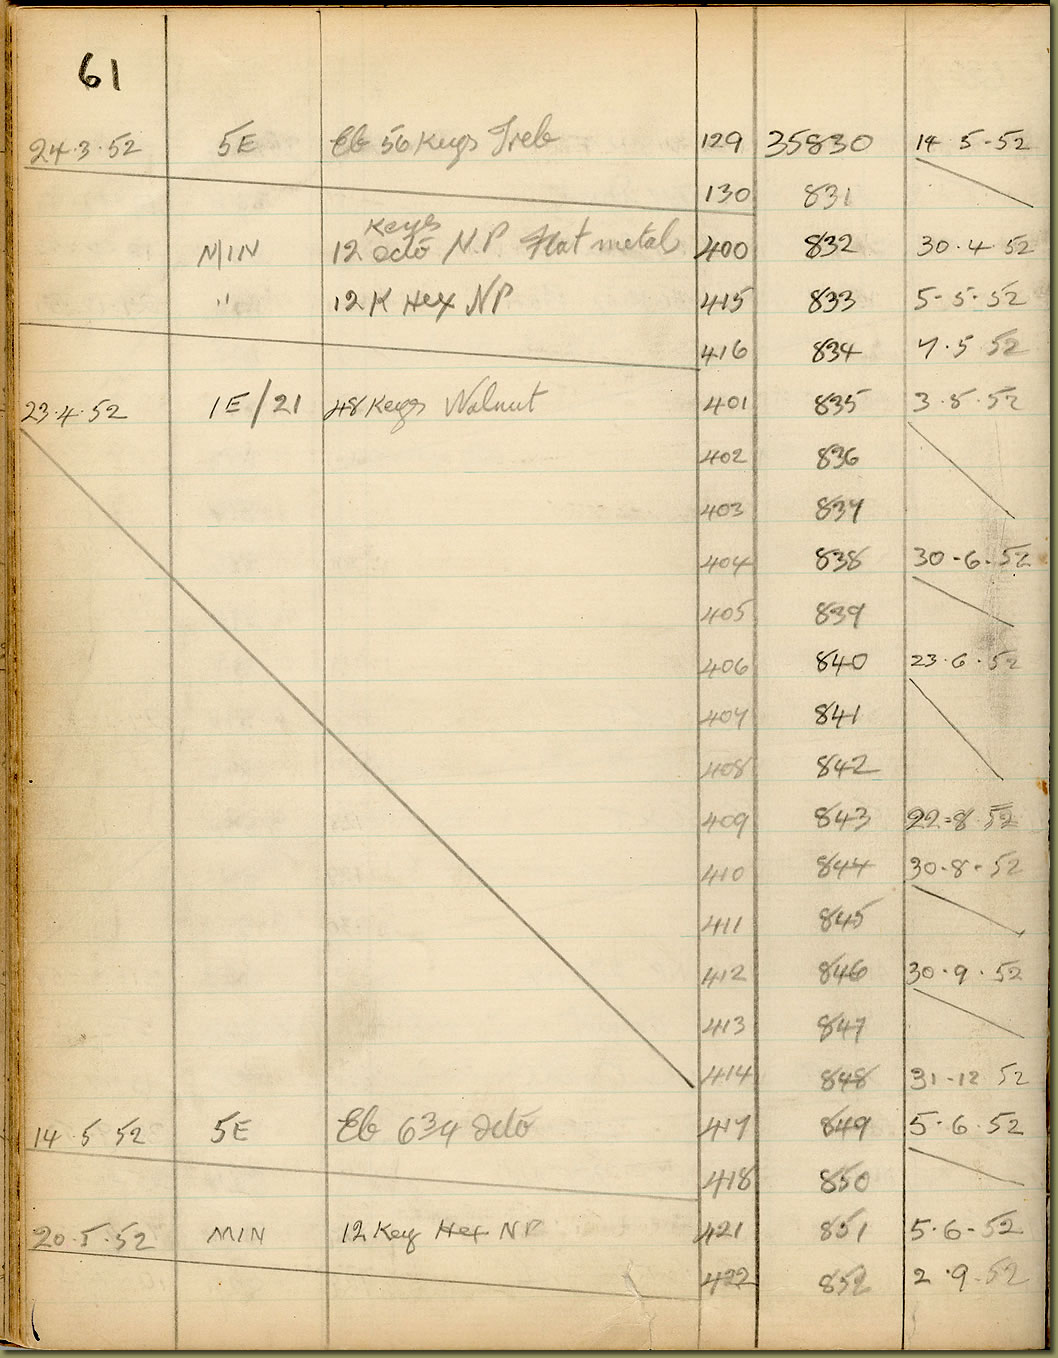 61
24.3.52 5E Eb 56 Keys Treb 129 35830 14 5-52
130 831
Keys
MIN 12 octo N.P Flat metal 400 832 30.4 52
" 12 K Hex NP 415 833 5-5-52
416 834 7.5 52
23.4.52 1E/21 48 Keys Walnut 401 835
402 836
403 837
404 838 30-6-52
405 839
406 840 23.6.52
407 841
408 842
409 843 22-8-52
410 844 30-8-52
411 845
412 846 30.9.52
413 847
414 848 31-12 52
14 5 52 5E Eb octo 417 849 5.6.52
418 850
20.5.52 MIN 12 Key Hex NP 421 851 5-6-52
422 852 2.9.52